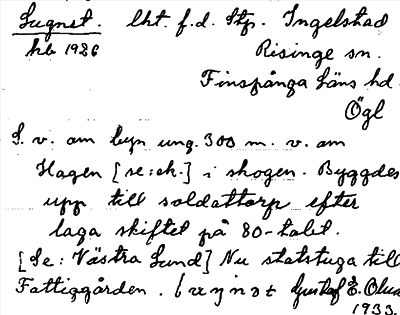 Lugnet. lht. f.d. stp. Ingelstad
hb 1926 Risinge sn.
Finspånga läns hd.
Ögl
S. v. om byn ung. 300 m. v. om
Hagen [se: ek.] i skogen. Byggdes
upp till soldattorp efter
laga skiftet på 80-talet.
[Se: Västra Lund] Nu statstuga till
Fattiggården. Gustaf E. Olus
1933.